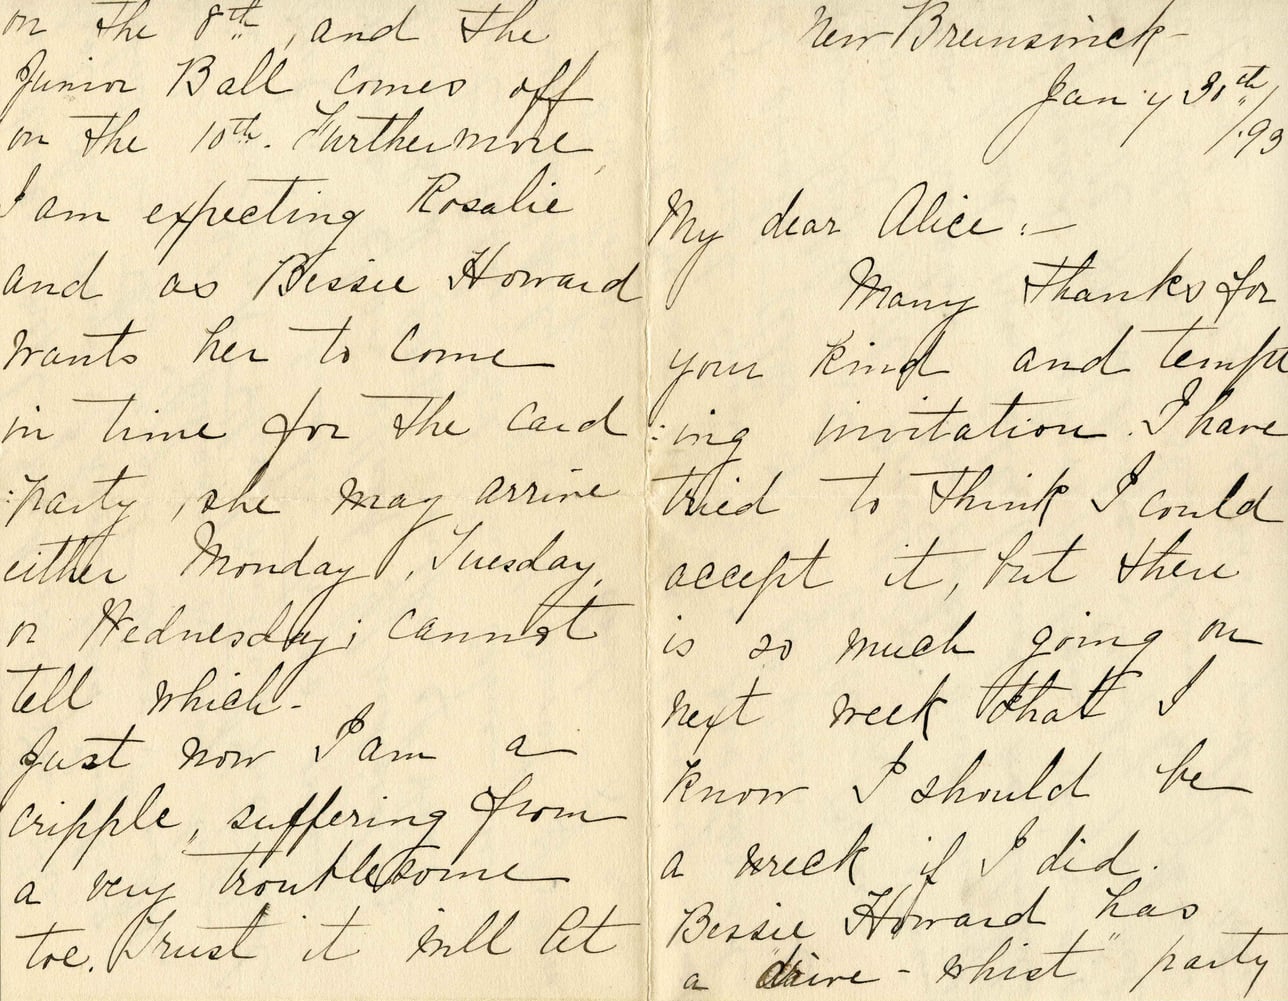 New Brunswick
Jan'y 30th/
/93
My dear Alice :—
Many thanks for
your kind and tempt
:ing invitation. I have
tried to think I could
accept it, but there
is so much going on
next week that I
know I should be
a wreck if I did.
Bessie Howard has
a "drive-whist" party
on the 8th, and the
Junior Ball comes off
on the 10th. Furthermore,
I am expecting Rosalie
and as Bessie Howard
wants her to come
in time for the card
:party, she may arrive
either Monday, Tuesday,
or Wednesday; cannot
tell which-
Just now I am a
cripple, suffering from
a very troublesome
toe. Trust it will let